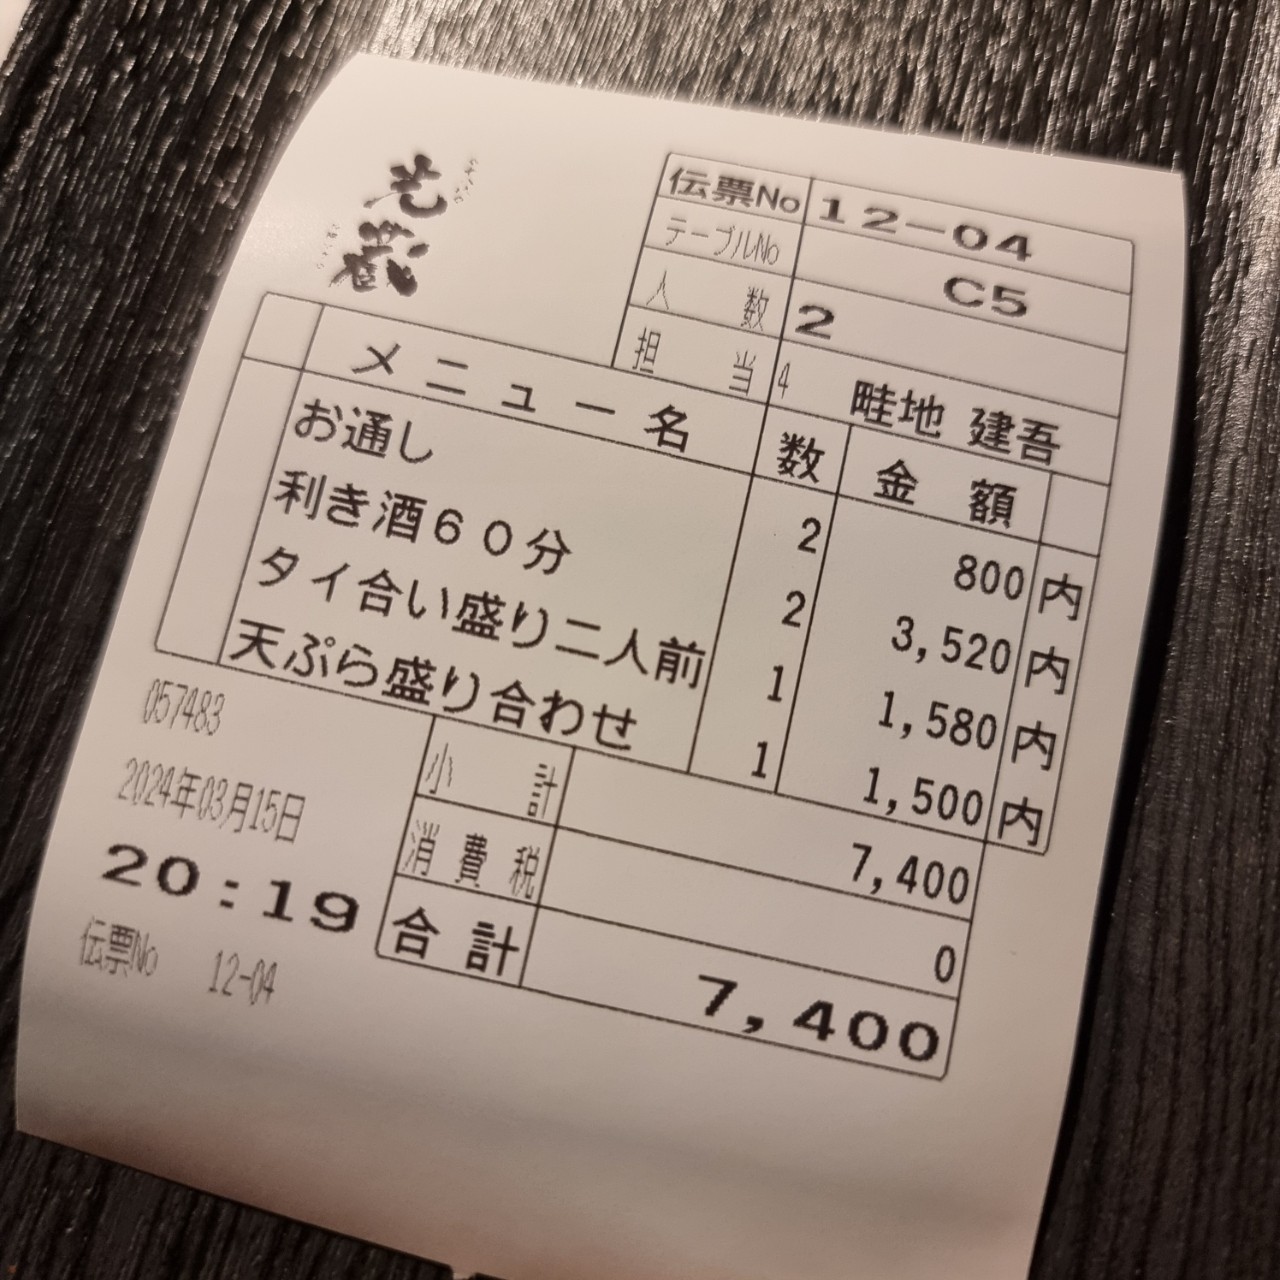 光蔵
伝票No 12-04
テーブルNo C5
人数 2
担当 4 畦地 建吾
メニュー名 数 金額
お通し 2 800 内
利き酒６０分 2 3,520 内
タイ合い盛り二人前 1 1,580 内
天ぷら盛り合わせ 1 1,500 内
小計 7,400
消費税 0
合計 7,400
057483
2024年03月15日
20:19
伝票No 12-04